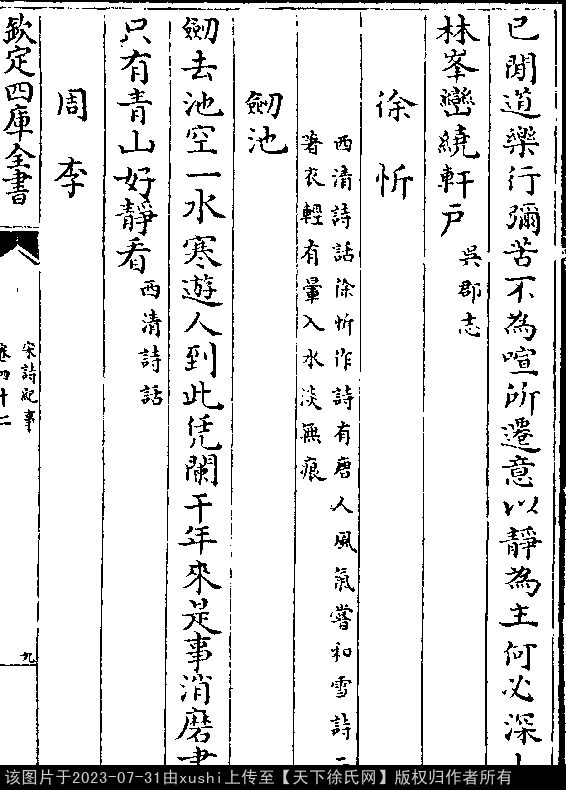 已聞道樂行彌苦不為喧所遷意以靜為主何必深
林峯巒繞軒戸 吳郡志
徐忻
西清詩話徐忻作詩有唐人風氣嘗和雪詩
著衣輕有暈入水淡無痕
劒池
劒去池空一水寒遊人到此凭闌干年來是事消磨
只有青山好靜看 西清詩話
周李
欽定四庫全書
宋詩紀事
卷四十二
九
该图片于2023-07-31由xushi上传至【天下徐氏网】版权归作者所有